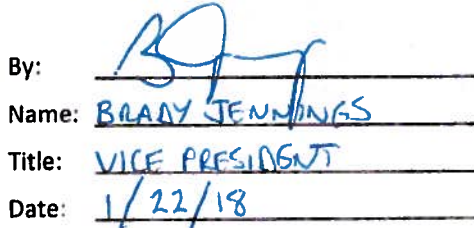 By:
Name: BRADY JENNINGS
Title: VICE PRESIDENT
Date: 1/22/18